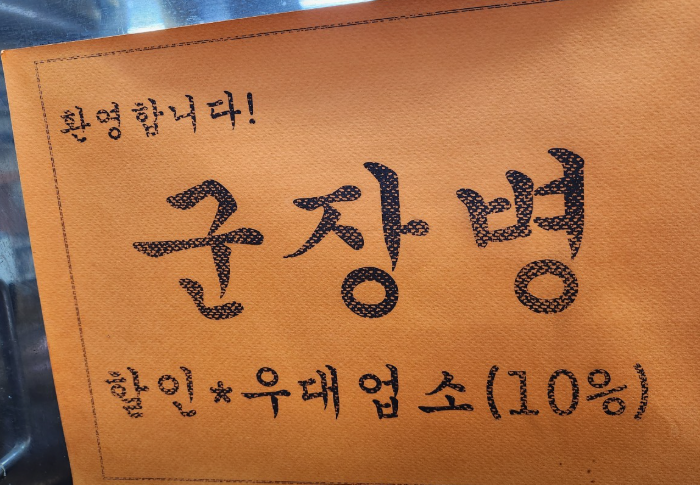 환영합니다!
군장병
할인*우대업소(10%)